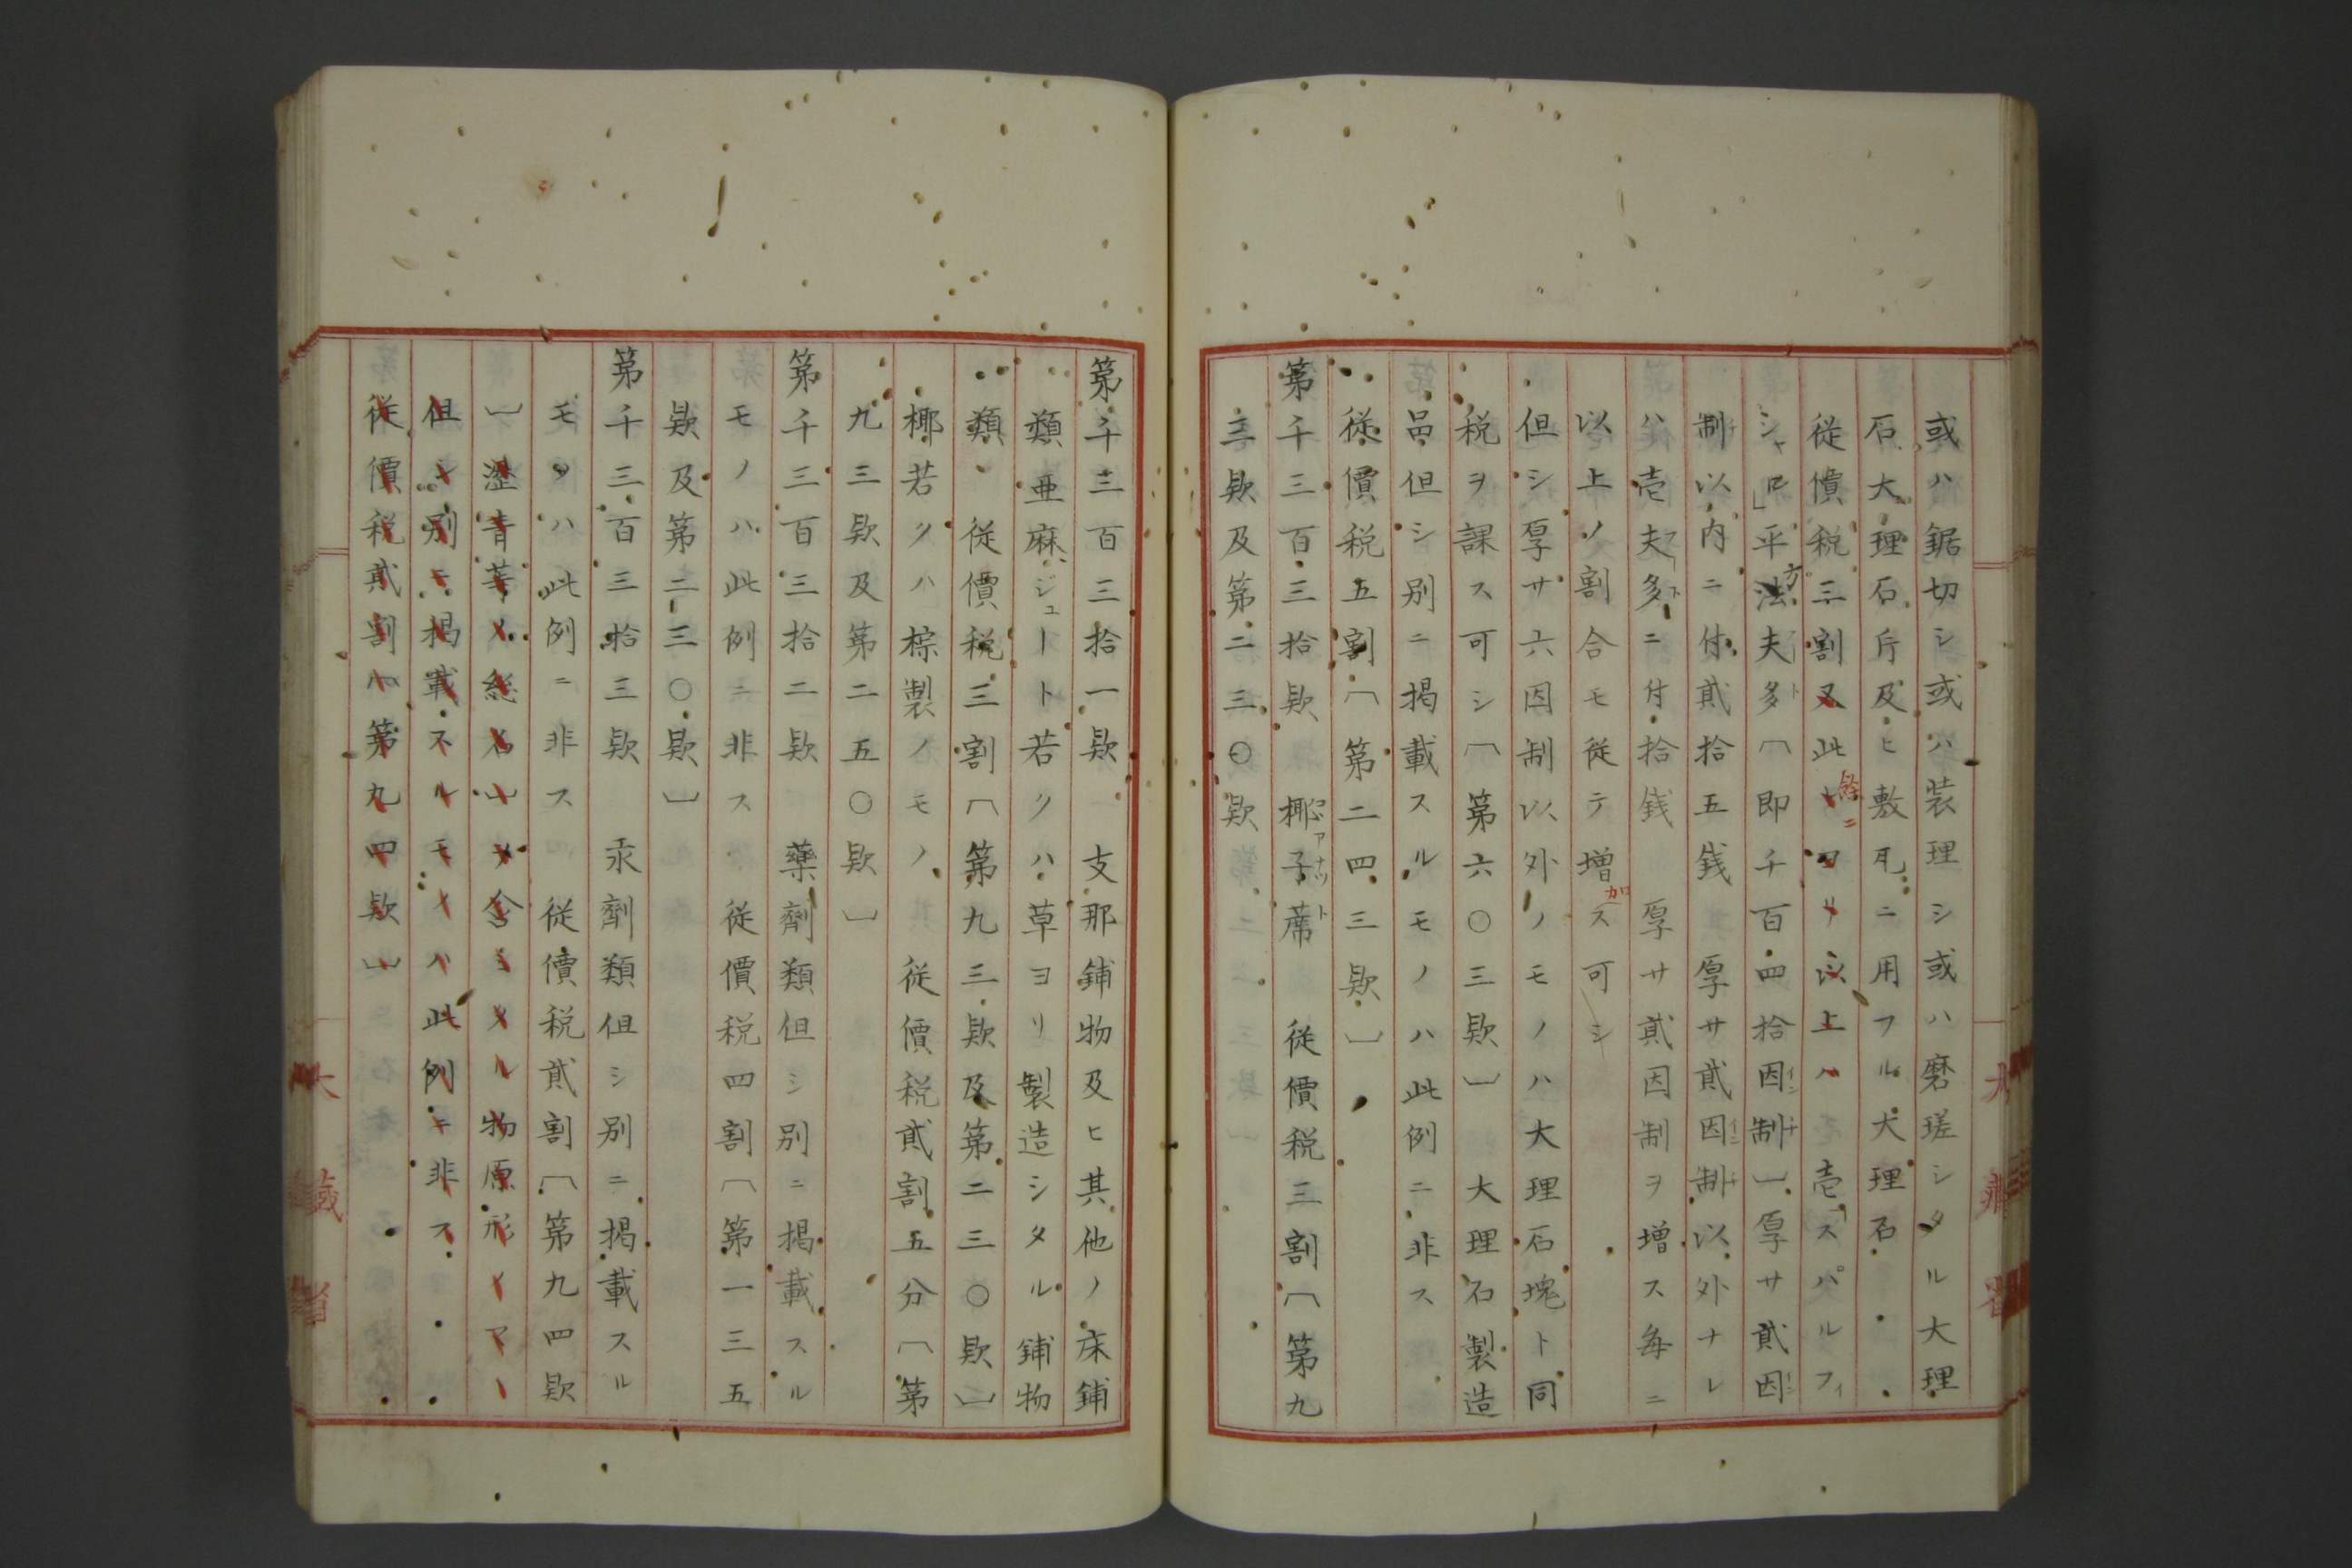 或ハ鋸切シ或ハ装理シ或ハ磨瑳シタル大理
石大理石斤及ヒ敷瓦ニ用フル大理石
従價税三割又此餘ニヨリ以上ハ壱スパルフィ
シャロ」平方法夫多〔即千百四拾因制一厚サ貮因
制以内ニ付貮拾五銭 厚サ貮因制以外ナレ
ハ壱夫多ニ付拾銭 厚サ貮因制ヲ増ス毎ニ
以上ノ割合モ従テ増加ス可シ
但シ厚サ六因制以外ノモノハ大理石塊ト同
税ヲ課ス可シ〔第六〇三欵〕 大理石製造
品但シ別ニ掲載スルモノハ此例ニ非ス
従價税五割〔第二四三欵〕
第千三百三拾欵 椰子蓆 従價税三割〔第九
三欵及第二三〇欵
第千三百三拾一欵 支那鋪物及ヒ其他ノ床鋪
類亜麻ジュート若クハ草ヨリ製造シタル鋪物
類 従價税三割〔第九三欵及第二三〇欵〕
椰若クハ棕製ノモノ 従價税貮割五分〔第
九三欵及第二五〇欵〕
第千三百三拾二欵 藥劑類但シ別ニ掲載スル
モノハ此例ニ非ス 従價税四割〔第一三五
欵及第二三〇欵〕
第千三百三拾三欵 汞劑類但シ別ニ掲載スル
モノハ此例ニ非ス 従價税貮割〔第九四欵
〕瀝青等ノ総名〕ヲ含ミタル物原形ノマヽ
但シ別ニ掲載スルモノハ此例ニ非ス
従價税貮割〔第九四欵〕
大藏省
大藏省